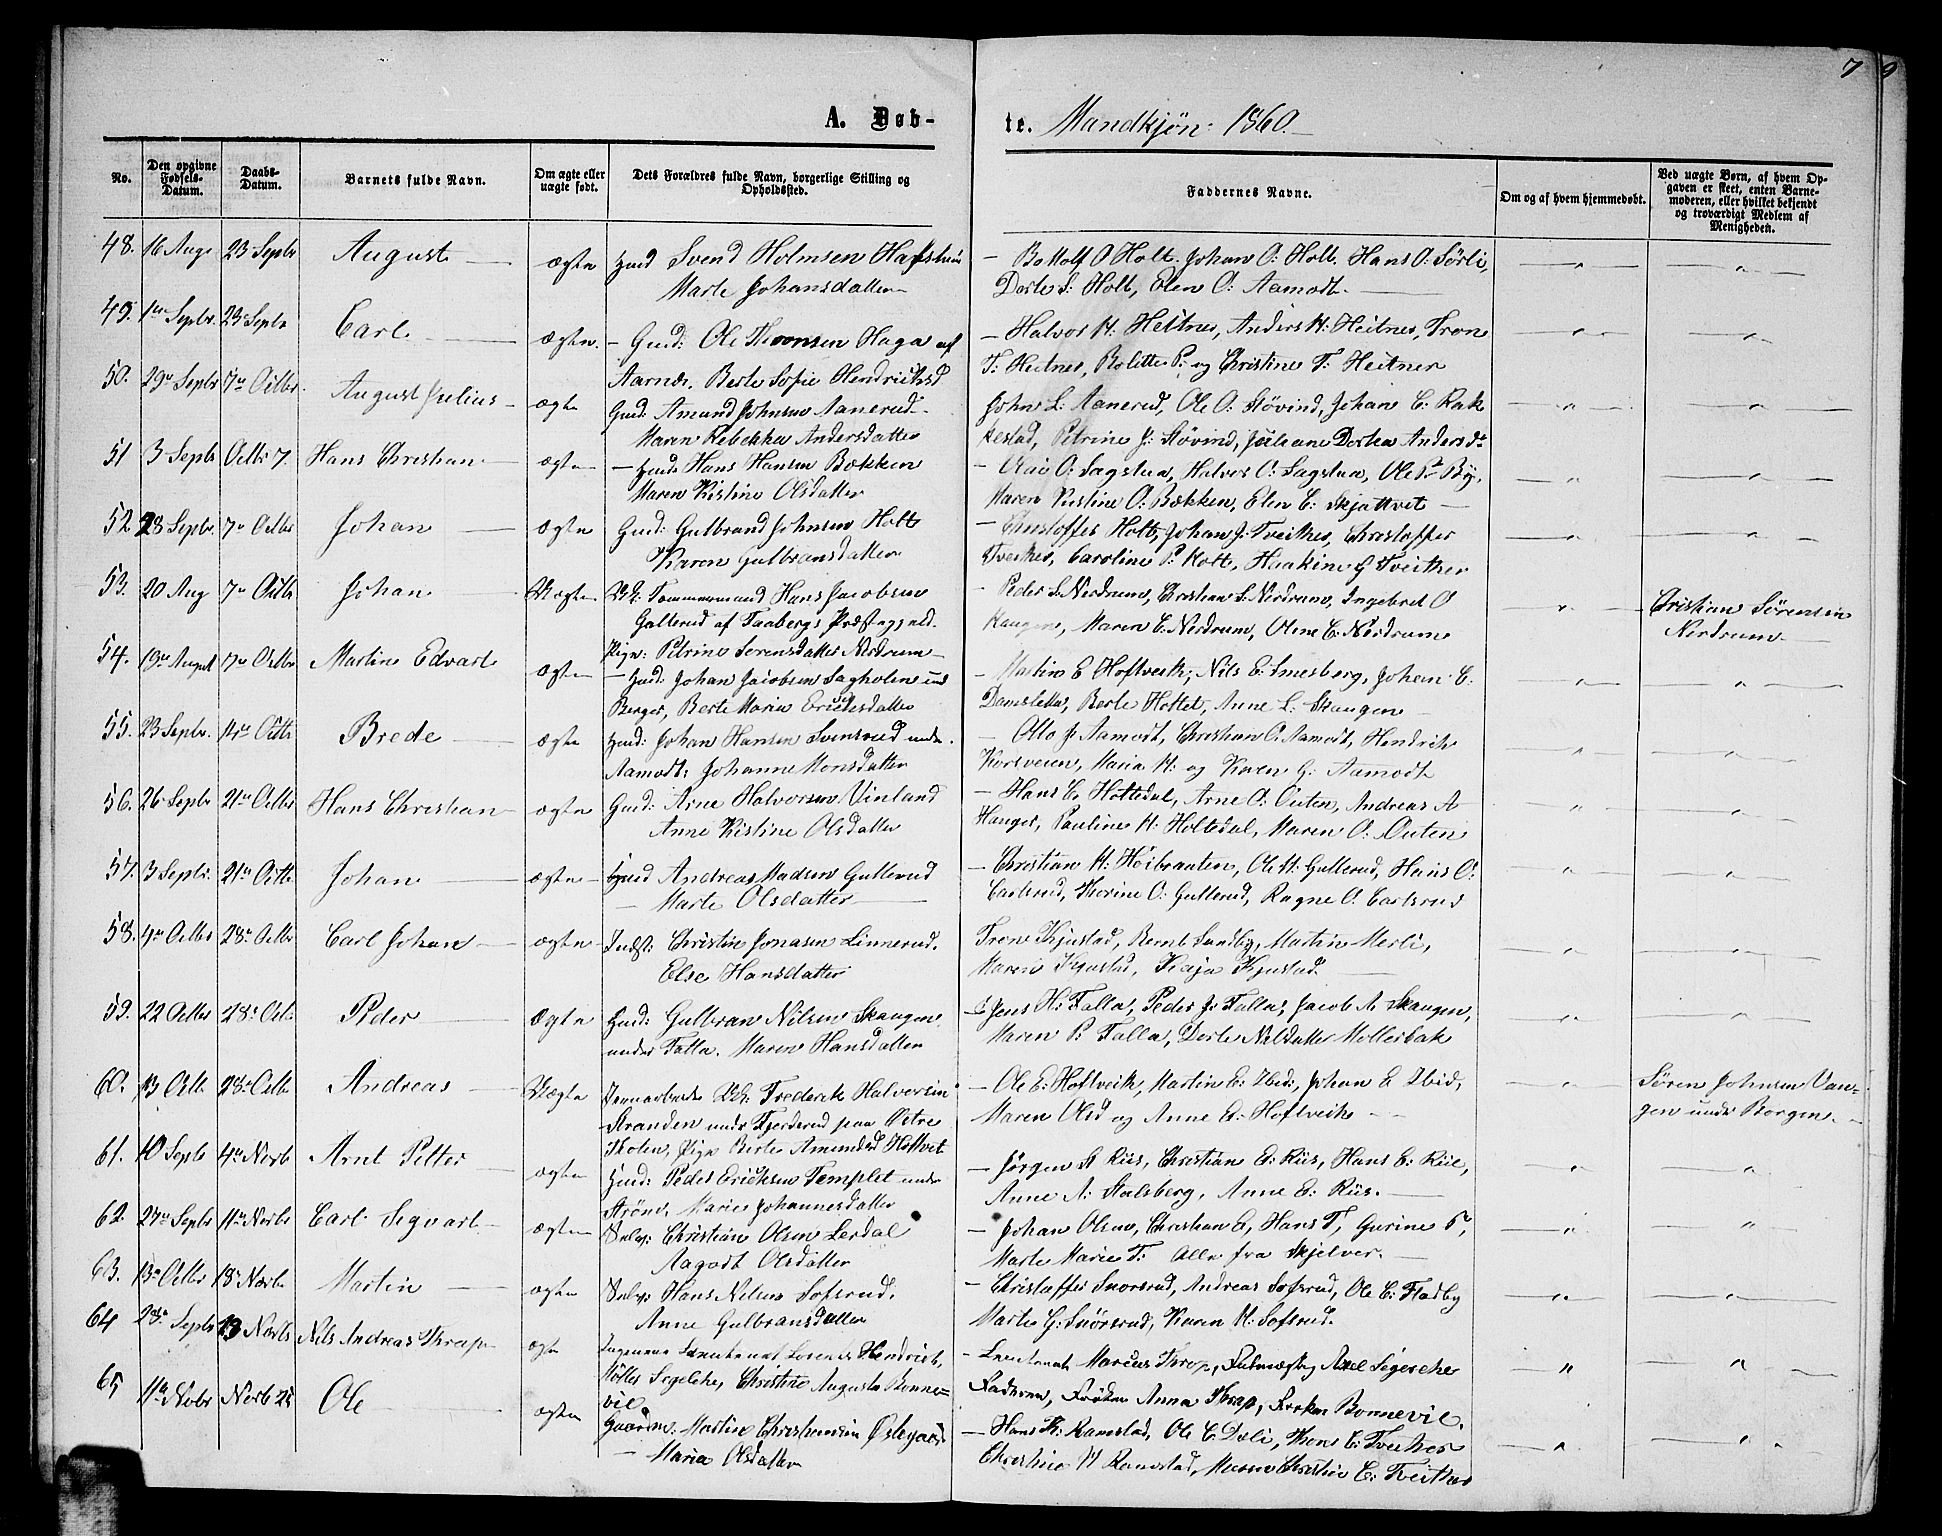 7 9
A. Døb-
te. Mandkjøn: 1860.
No.
Den opgivne Fødsels-Datum.
Daabs-Datum.
Barnets fulde Navn.
Om ægte eller uægte født.
Dets Forældres fulde Navn, borgerlige Stilling og Opholdssted.
Faddernes Navne.
Om og af hvem hjemmedøbt.
Ved uægte Børn, af hvem Opgaven er skeet, enten Barnemoderen, eller hvilket bekjendt og troværdigt Medlem af Menigheden.
48. 16 Aug 23 Septbr August ægte Huusd Svend Holmsen
Marte Johansdatter
O Holt. Johan O: Holt. Hans O. Sørli,
Dorte S: Holt, Elen O: Aamodt.
49. 1ste Septbr. 23 Septbr Carl ægte Gmd: Ole Thronsen Haga af
Aarnes. Berte Sofie Hendriksd
Halvor H. Heitnes, Anders H: Heitnes, Tron
T. Heitnes, P: og Christine T: Heitnes
50. 29 Septbr 7 Octbr August Julius ægte Gmd: Amund Johnsen Aanerud
Maren Rebekka Andersdatter
John L: Aanerud, Ole O: Støvind, Johan C: Rak
kestad, Petrine J: Støvind, Juliane Dorthea Andersd
51 3 Septbr Octbr 7. Hans Christian ægte Huusd Hans Hansen Bækken
Maren Kistine Olsdatter
O: Sagstua, Halvor O: Sagstua, Ole P By,
Maren Kistine O: Bækken, Elen C: Skjattvet
52. 28 Septbr. 7 Octbr Johan ægte Gmd: Gulbrand Johnsen Holt
Karen Gulbransdatter
Christoffer Holt, Johan J. Tveither, Christoffer
Tveither, Caroline P: Holt, Haakine G Tveither
53. 20 Aug 7 Octbr Johan Uægte Tømmermand Hans Jacobsen
Gullerud af Faabergs Præstegjeld.
Pige: Petrine Sørensdatter Nerdrum
Peder S. Nerdrum, Christian S: Nerdrum, Ingebret O
Haugen, Maren C. Nerdrum, Oline C. Nerdrum
Christian Sørensen
Nerdrum
54. 13 August 7 Octbr Martin Edvart ægte Huusd: Johan Jacobsen Sagholen und
Berger, Berte Maria Eriksdatter
Martin E Hoftveith, Nils E: Smesberg, Johan C.
Damsletta, Berte Hottet, Anne L: Skaugen
55. 23 Septbr. 14 Octbr Brede ægte Huusd: Johan Hansen Svensrud under
Aamodt: Johanne Monsdatter
Otto J: Aamodt, Christian O. Aamodt, Hendrik
Korsveien, Maria H: og Karen G: Aamodt
56. 26 Septbr 21 Octbr Hans Christian ægte Gmd: Arne Halvorsen Vinland
Anne Kistine Olsdatter
Hans C. Holtedal, Arne O: Outen, Andreas A
Hanger, Pauline H: Holtedal, Maren O: Outen
57. 3 Septbr. 21 Octbr Johan ægte Huusd Andreas Madsen Gullerud
Marte Olsdatter
Christian H: Høibraaten, Ole M: Gullerud, Hans O:
Carlsrud, Thorine O: Gullerud, Ragne O: Carlsrud
58. 4 Octbr 28 Octbr Carl Johan ægte Indst: Christin Jonasen Linnerud.
Else Hansdatter
Trone Kjustad, Bernt Sundby, Martin Merli,
Maren Kjustad, Kaja Kjustad.
59. 22 Octbr 28 Oct. Peder Ægte Huusd: Gulbran Nilsen Skaugen
under Falla. Maren Hansdatter
Jens H: Falla, Peder J: Falla, Jacob A: Skaugen,
Maren P: Falla, Dorte Nilsdatter Møllerbak
60. 13 Octb 28 Octb Andreas Uægte Frederik Halvorsen
Stranden under Fjerderud paa Østre
Thoten, Pige Berte Amundsd Hottvet
Ole E: Hoftveith, Martin E: Ibid:, Johan E Ibid,
Maren Olsd og Anne E: Hoftveith
Søren Johnsen Van-
gen under Borgen.
61. 10 Septb 4 Novb Arnt Petter ægte Huusd: Peder Eriksen Templet under
Strøm, Marie Johannesdatter
Jørgen A Riis, Christian E: Riis, Hans E: Riis,
Anne A: Stalsberg, Anne E: Riis.
62. 27 Septbr 11 Novbr Carl Sigvart ægte Selv: Christian Olsen Lerdal
Aagodt Olsdatter
Johan Olsen, Christian E, Hans T, Gurine P,
Marte Marie T: Alle fra Skjelver.
63. 13 Octbr 18 Novb Martin ægte Selv: Hans Nilsen Sofsrud.
Anne Gulbransdatter
Christoffer Snorsrud, Andreas Sofsrud, Ole C: Fladby
Marte G: Snörsrud, Karen H: Sofsrud.
64 28 Septbr Novbr Nils Andreas Thrap ægte Lieutenant Lorents Hendrik
Møller Segelcke, Christine Augusta Bonne=
vie
Lieutenant Marcus Thrap, Axel Segelcke
Faderen, Frøken Anna Thrap, Frøken Bonnevie.
65 11te Novbr Novb 25 Ole ægte Gaardm: Martin Christiansen Østegaard
Maria Olsdatter
Hans K: Ramstad, Ole C. Dæli, Thons C: Tveither
Christine H Ramstad, Maren Christine C: Tveither